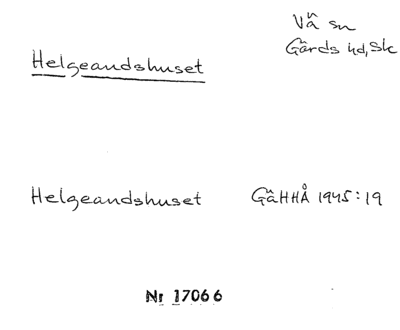 Helgeandshuset
Vä sn
Gärds hd, Sk
Helgeandshuset GäHHÅ 1945:19
Nr 17066